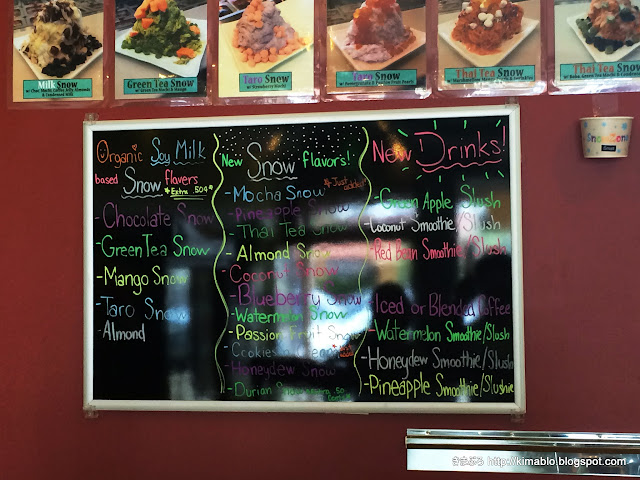 Milk Snow
w/ Chai Mochi, Coffee Jelly, Almonds
& Condensed Milk
Green Tea Snow
w/ Green Tea Mochi & Mango
Taro Snow
w/ Strawberry Mochi
Taro Snow
Thai Tea Snow
Green Tea Snow
Organic Soy Milk
based Snow flavors
*Extra .50¢*
-Chocolate Snow
-Green Tea Snow
-Mango Snow
-Taro Snow
-Almond
New Snow flavors!
-Mocha Snow
*Just added!
-Pineapple Snow
-Thai Tea Snow
-Almond Snow
-Coconut Snow
-Blueberry Snow
-Watermelon Snow
-Passion Fruit Snow
-Cookies
-Honeydew Snow
-Durian Snow
New Drinks!
-Green Apple Slush
-Coconut Smoothie/Slush
-Red Bean Smoothie/Slush
-Iced or Blended Coffee
-Watermelon Smoothie/Slush
-Honeydew Smoothie/Slush
-Pineapple Smoothie/Slushie
きまぶろ http://kimablo.blogspot.com